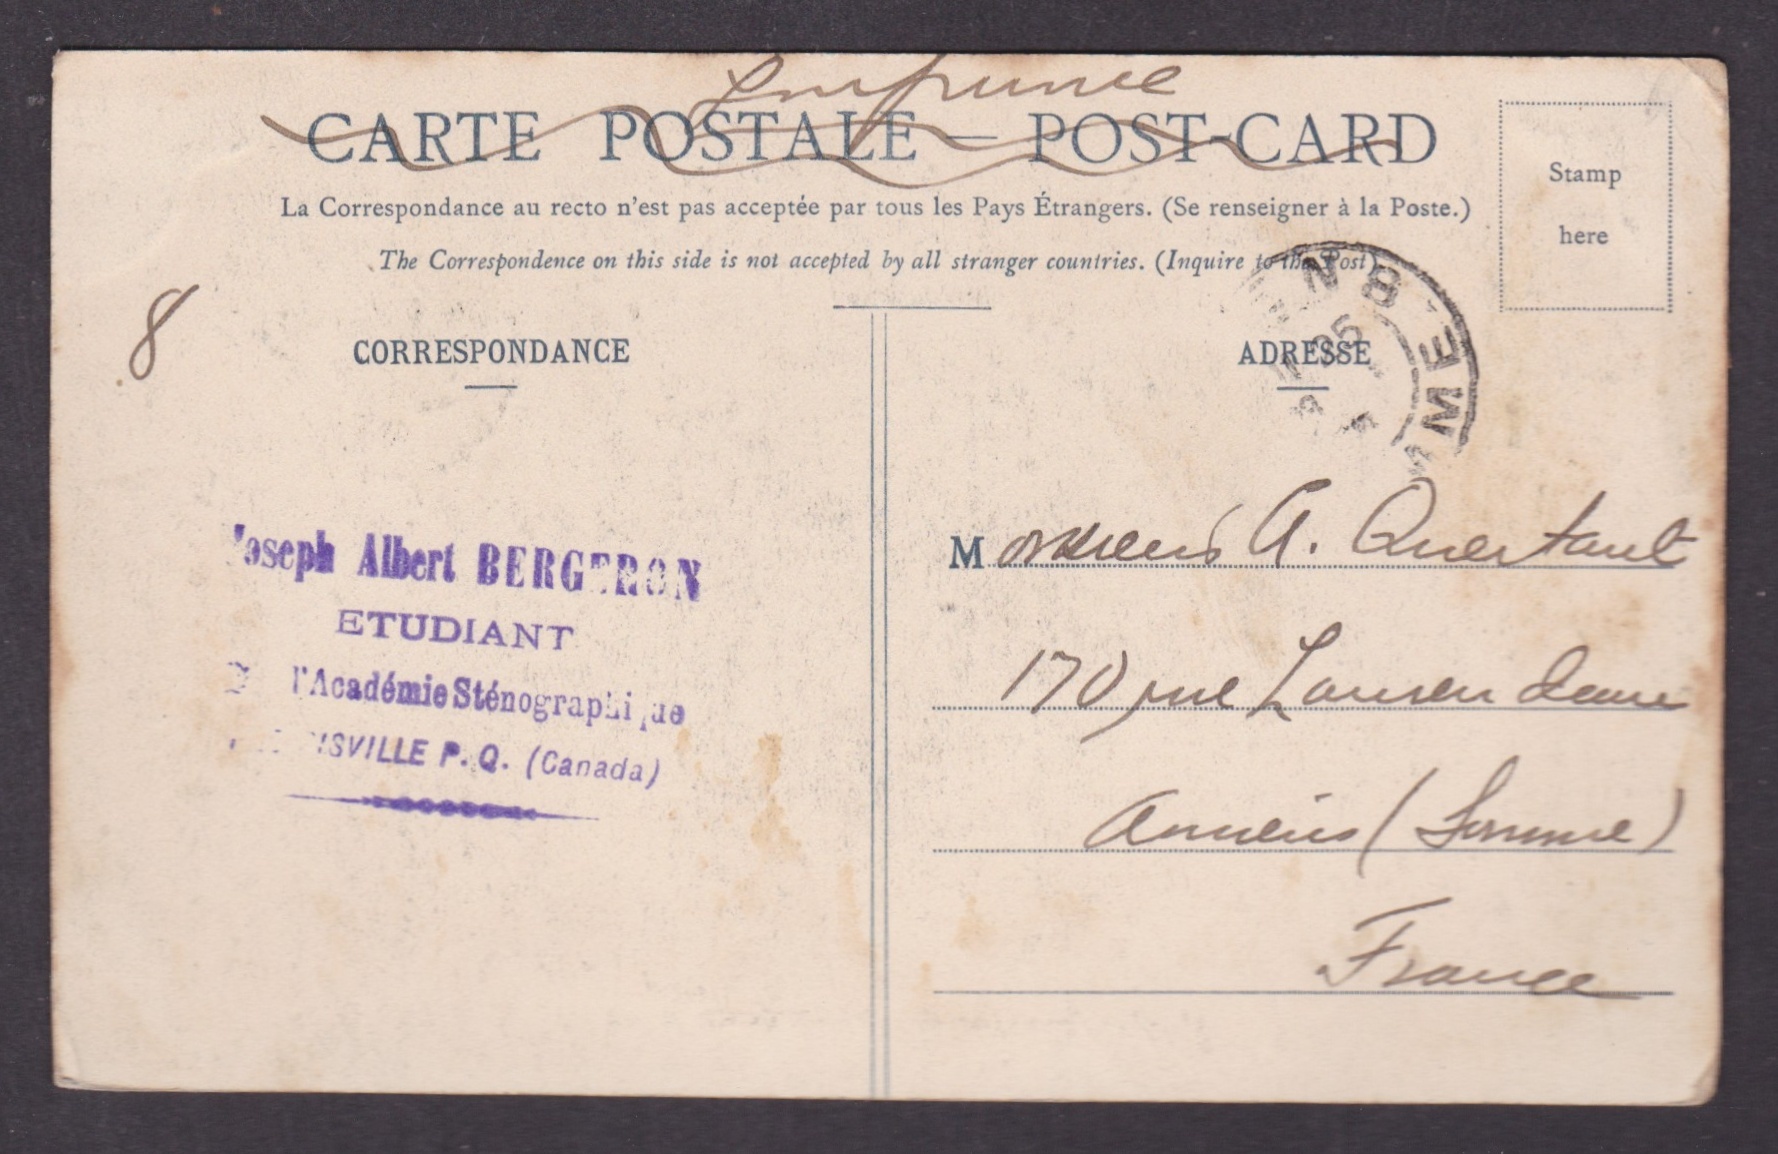 Imprimé
CARTE POSTALE — POST-CARD
La Correspondance au recto n'est pas acceptée par tous les Pays Étrangers. (Se renseigner à la Poste.)
The Correspondence on this side is not accepted by all stranger countries. (Inquire to the Post)
Stamp
here
8
CORRESPONDANCE
ADRESSE
Joseph Albert BERGERON
ETUDIANT
l'Académie Sténographique
ISVILLE P. Q. (Canada)
Monsieur A. Quertant
170 rue
Amiens (Somme)
France